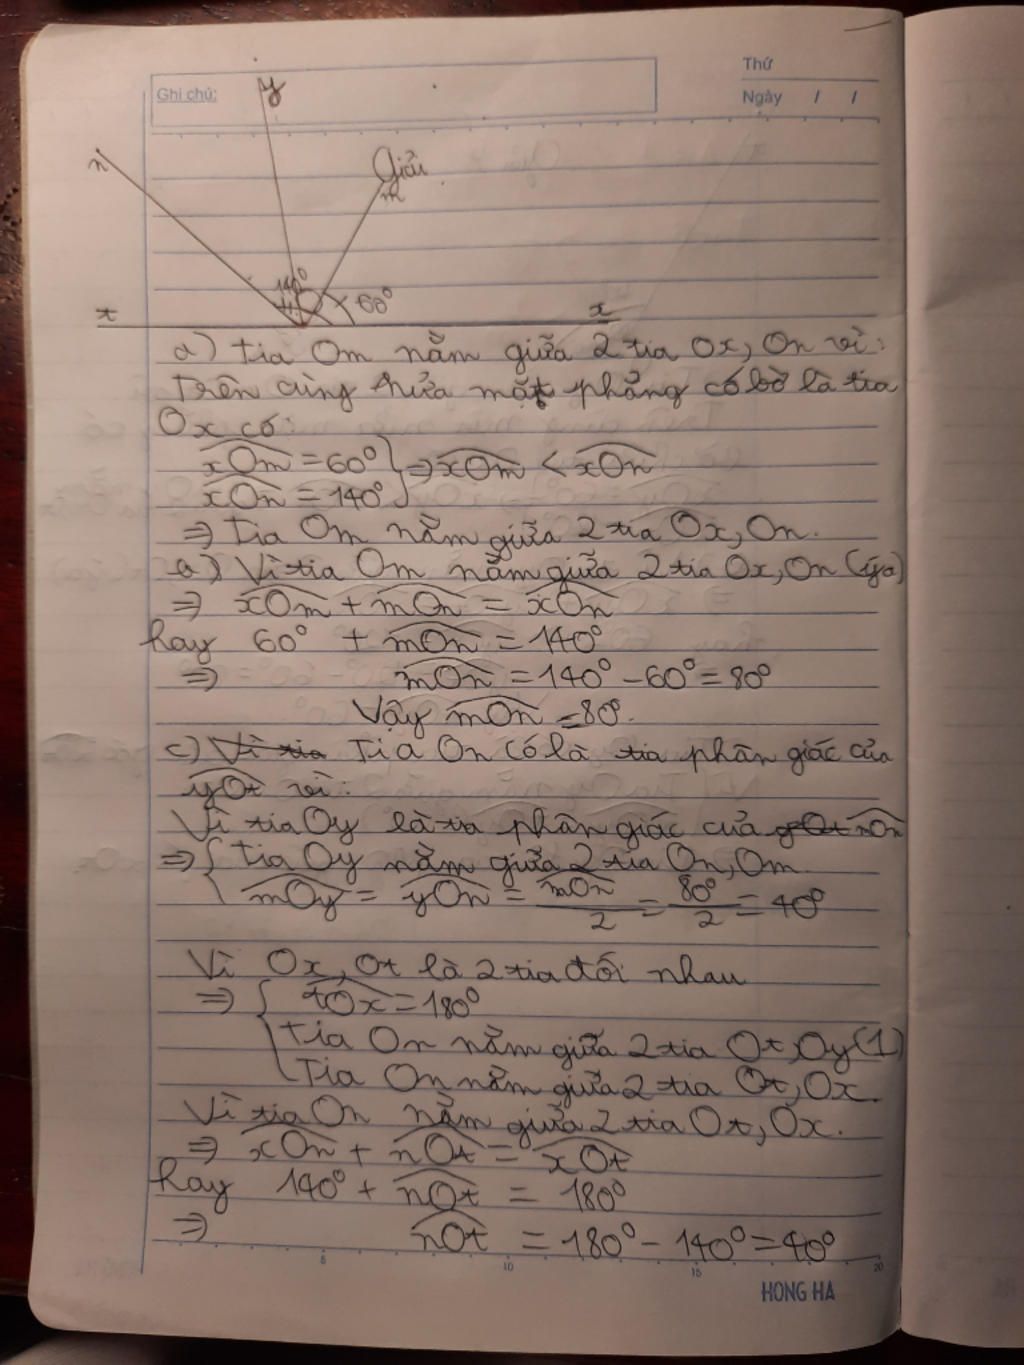 Thứ
Ghi chú:
Ngày / /
y
n
Giải
m
140°
60°
t
x
a) Tia Om nằm giữa 2 tia Ox, On vì:
Trên cùng nửa mặt phẳng có bờ là tia
Ox có:
xOm = 60°
xOn = 140°
⇒ xOm < xOn
⇒ Tia Om nằm giữa 2 tia Ox, On.
b) Vì tia Om nằm giữa 2 tia Ox, On (ý a)
⇒ xOm + mOn = xOn
hay 60° + mOn = 140°
⇒ mOn = 140° - 60° = 80°
Vậy mOn = 80°.
c) Vì tia Tia On có là tia phân giác của
yOt vì:
Vì tia Oy là tia phân giác của yOt mOn
⇒ { Tia Oy nằm giữa 2 tia On, Om.
mOy = yOn = mOn/2 = 80°/2 = 40°
Vì Ox, Ot là 2 tia đối nhau
⇒ { tOx = 180°
Tia On nằm giữa 2 tia Ot, Oy (1)
Tia On nằm giữa 2 tia Ot, Ox.
Vì tia On nằm giữa 2 tia Ot, Ox.
⇒ xOn + nOt = xOt
hay 140° + nOt = 180°
⇒ nOt = 180° - 140° = 40°
5 10 15 20
HONG HA